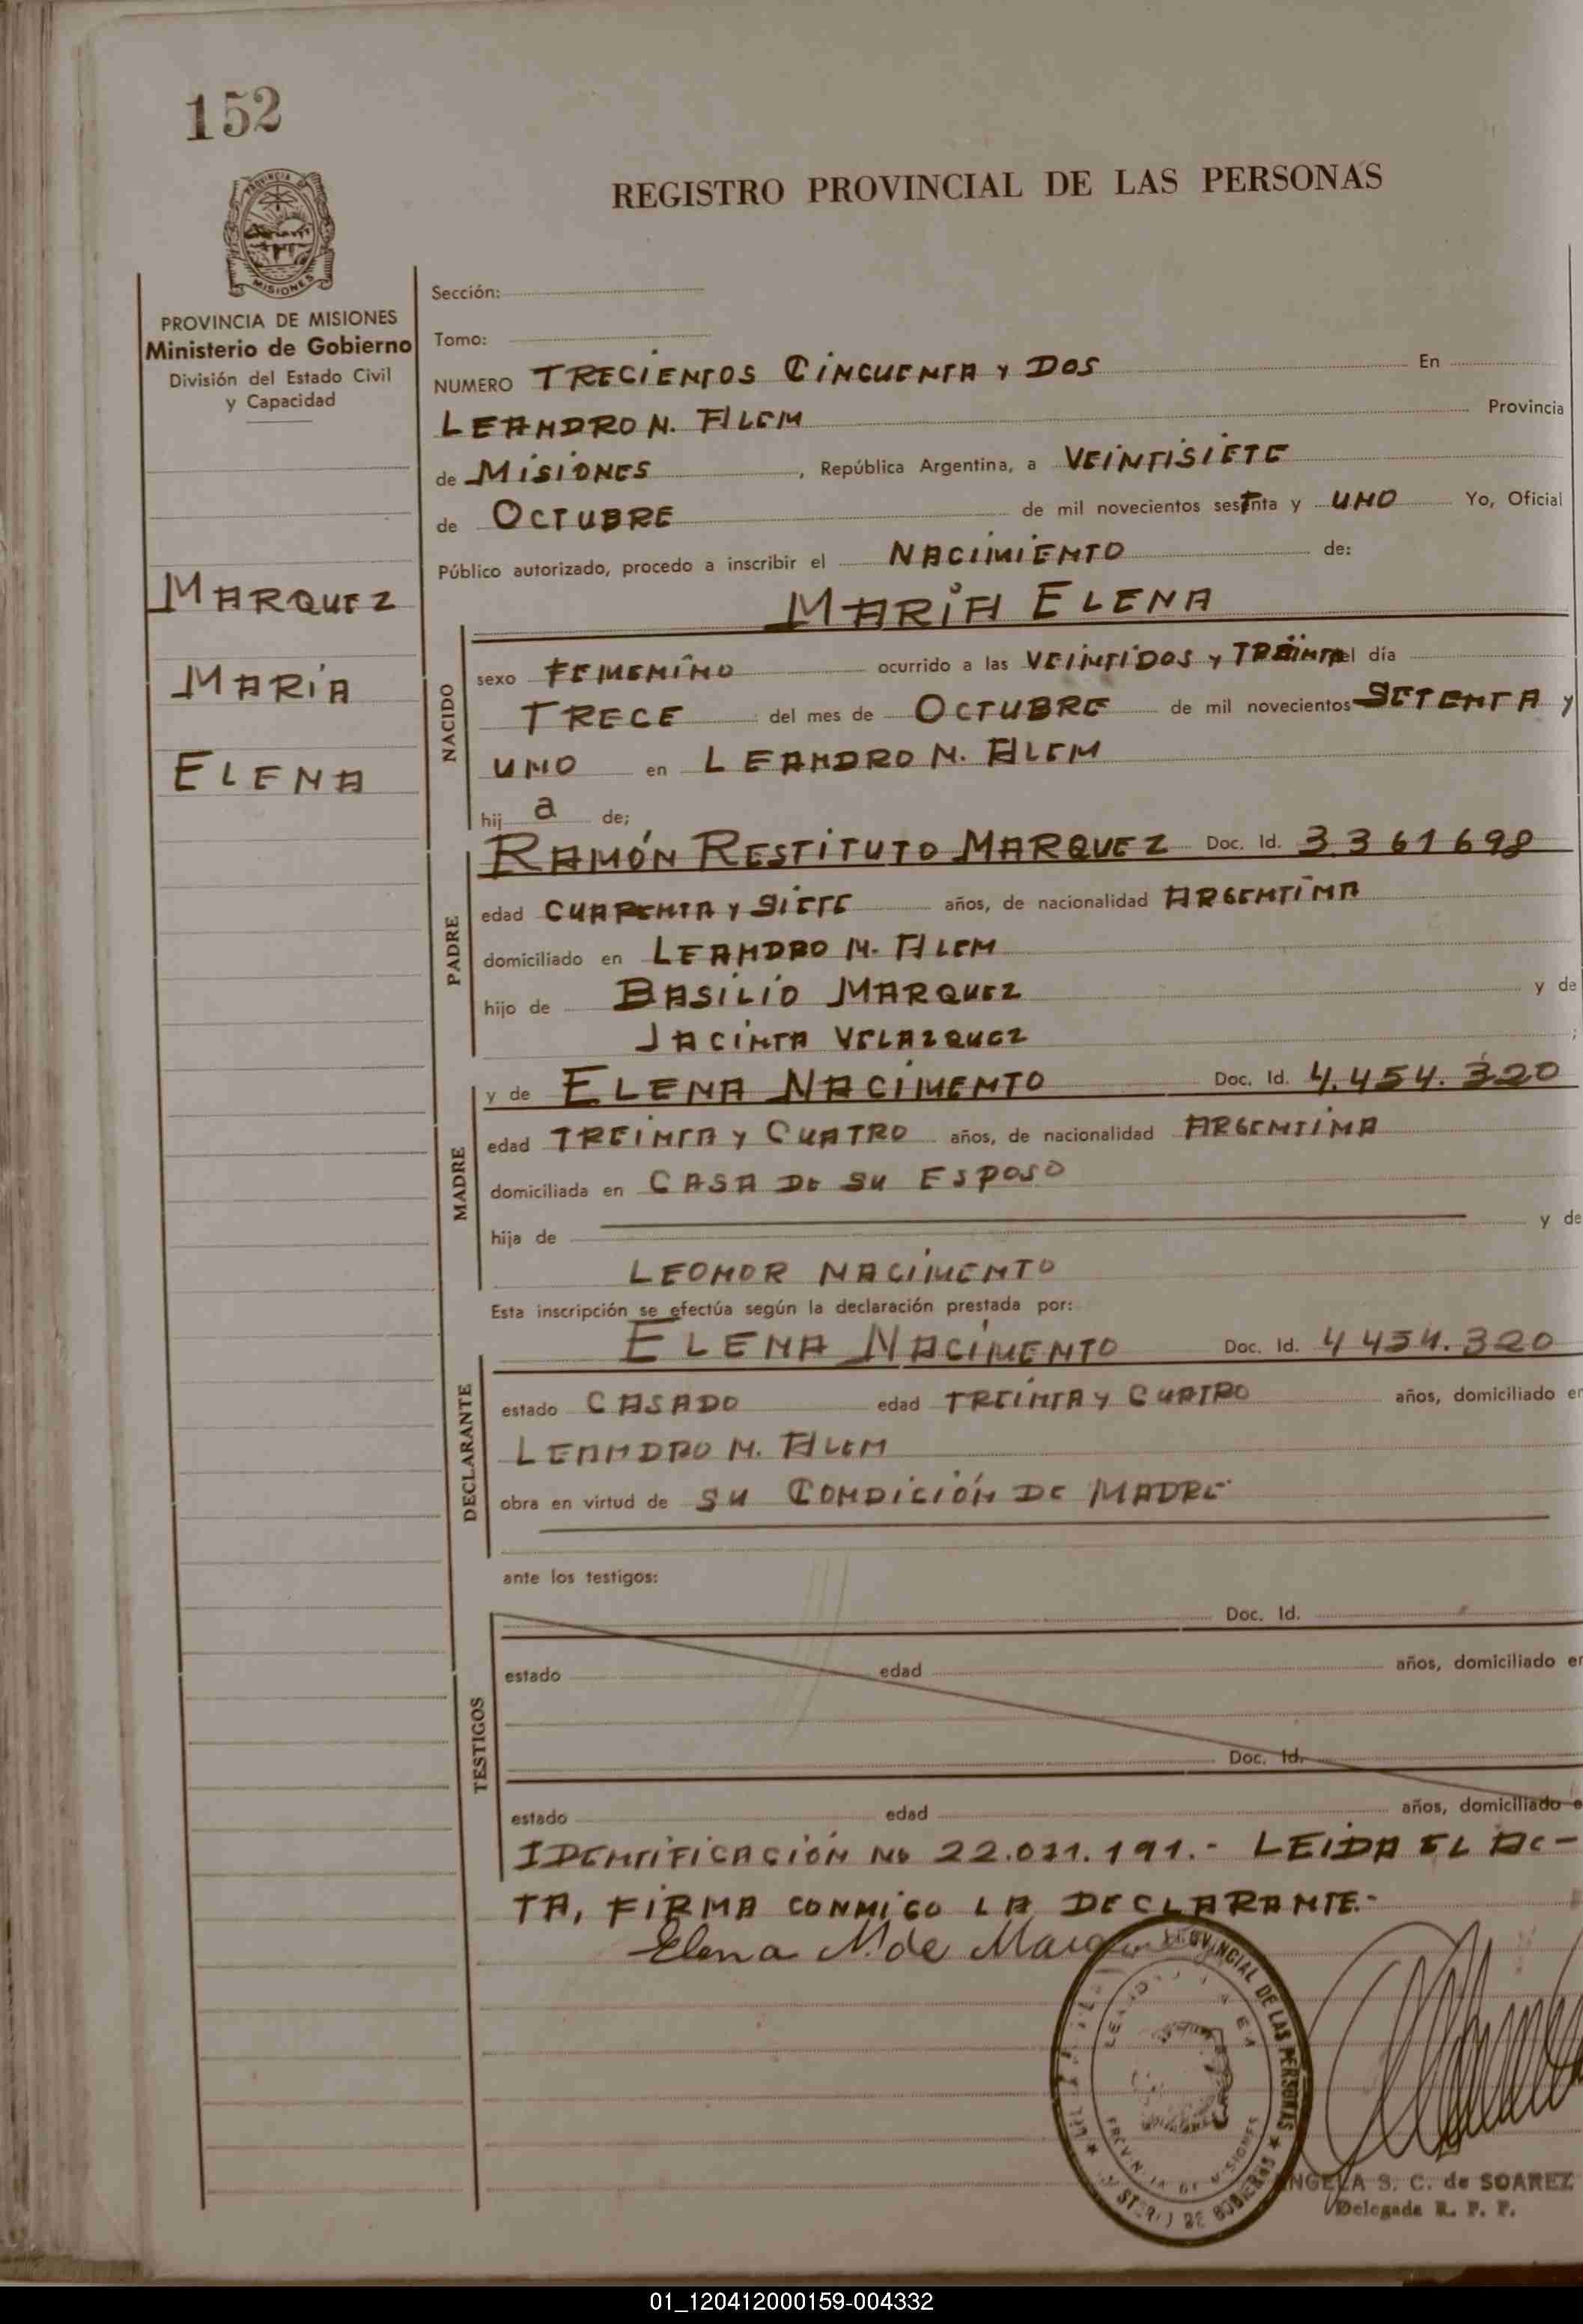 152
REGISTRO PROVINCIAL DE LAS PERSONAS
MISIONES
PROVINCIA DE MISIONES
Ministerio de Gobierno
División del Estado Civil
y Capacidad
MARQUEZ
MARÍA
ELENA
Sección:
Tomo:
NUMERO TRECIENTOS CINCUENTA Y DOS En
LEANDRO N. ALEM Provincia
de MISIONES, República Argentina, a VEINTISIETE
de OCTUBRE de mil novecientos sesTnta y UNO Yo, Oficial
Público autorizado, procedo a inscribir el NACIMIENTO de:
MARÍA ELENA
NACIDO
sexo FEMENINO ocurrido a las VEINTIDOS Y TREINTA el día
TRECE del mes de OCTUBRE de mil novecientos SETENTA Y
UNO en LEANDRO N. ALEM
hij a de;
PADRE
RAMÓN RESTITUTO MARQUEZ Doc. Id. 3361698
edad CUARENTA Y SIETE años, de nacionalidad ARGENTINA
domiciliado en LEANDRO N. ALEM
hijo de BASILIO MARQUEZ y de
JACINTA VELAZQUEZ ;
MADRE
y de ELENA NACIMENTO Doc. Id. 4.454.320
edad TREINTA Y CUATRO años, de nacionalidad ARGENTINA
domiciliada en CASA DE SU ESPOSO
hija de y de
LEONOR NACIMENTO
Esta inscripción se efectúa según la declaración prestada por:
DECLARANTE
ELENA NACIMENTO Doc. Id. 4454.320
estado CASADO edad TREINTA Y CUATRO años, domiciliado en
LEANDRO N. ALEM
obra en virtud de SU CONDICIÓN DE MADRE
ante los testigos:
TESTIGOS
Doc. Id.
estado edad años, domiciliado en
Doc. Id.
estado edad años, domiciliado e
IDENTIFICACIÓN No 22.021.191.- LEIDA EL AC-
TA, FIRMA CONMIGO LA DECLARANTE.-
Elena N. de Marquez
PROVINCIAL DE LAS PERSONAS
ANGELA S. C. de SOAREZ
Delegada R. P. P.
01_120412000159-004332